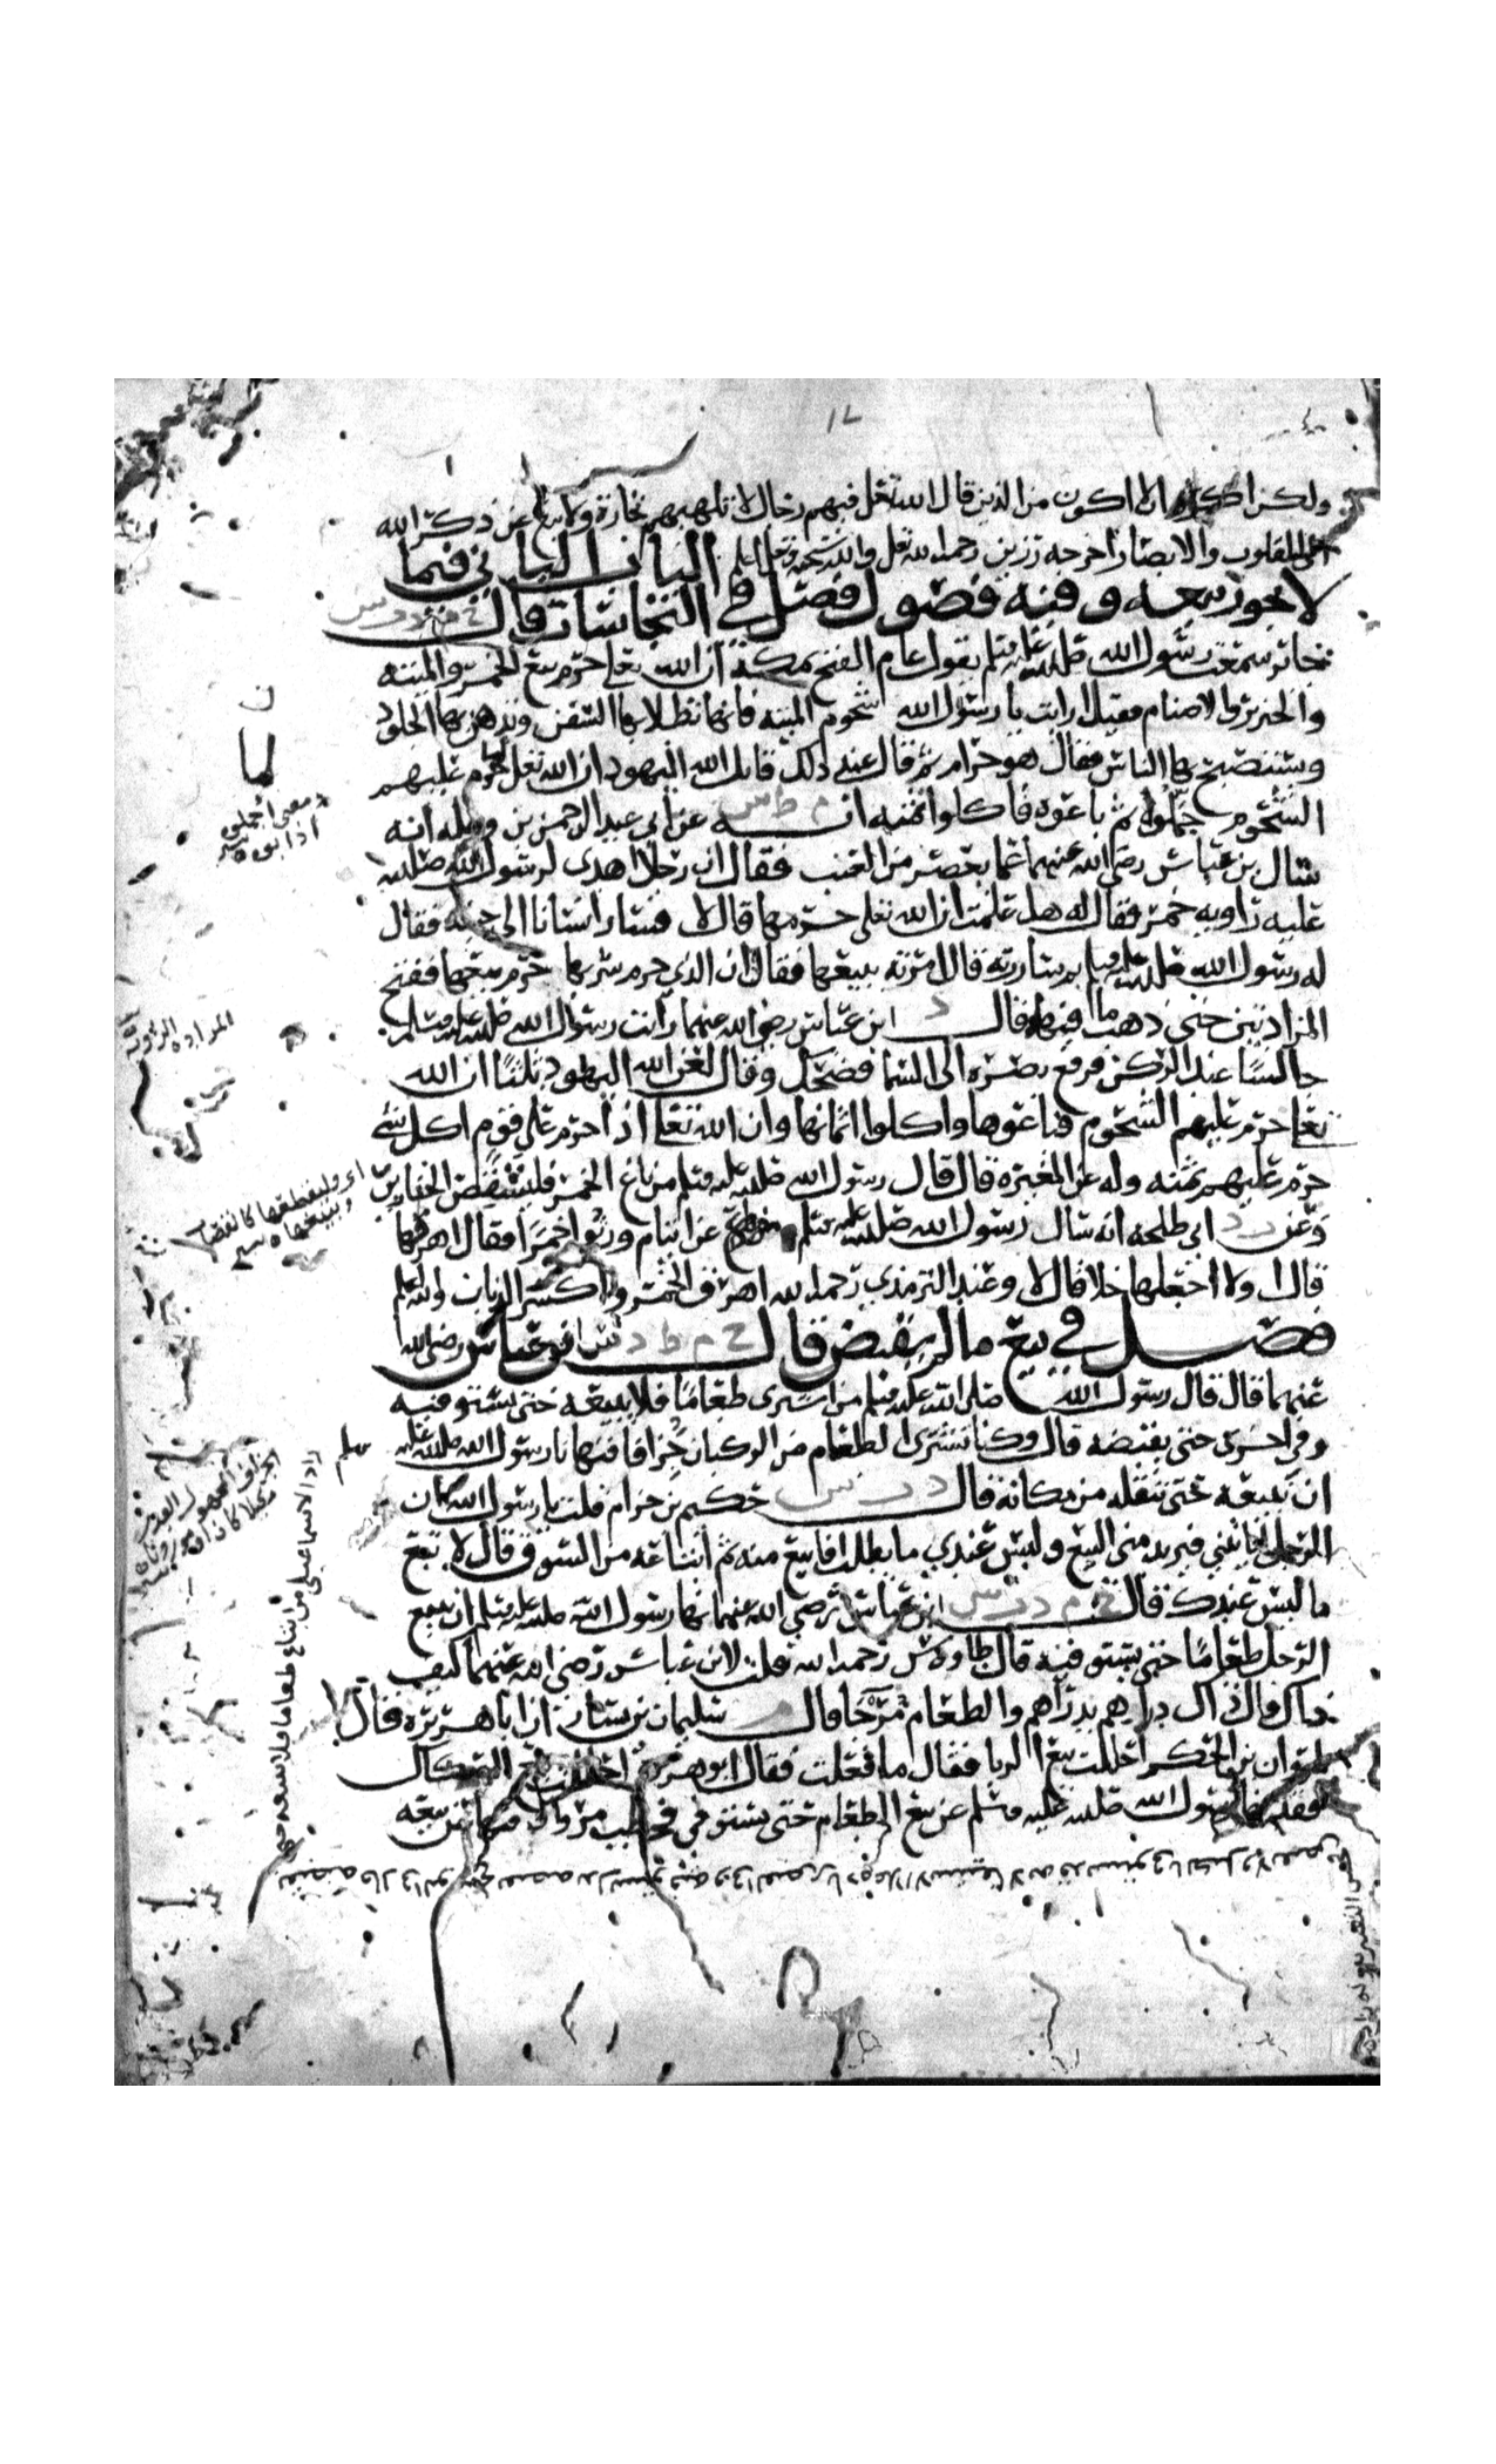 ١٢
ولكن اكره ان لا اكون من الذين قال الله تعلى فيهم رجال لا تلهيهم تجارة ولا بيع عن ذكر الله
القلوب والابصار اخرجه رزين رحمه الله تعلى والله سبحنه وتعلى اعلم الباب الثاني فيما
لا يجوز بيعه وفيه فصول فصل في النجاسات قال خ م د ت س
جابر سمعت رسول الله صلى الله عليه وسلم يقول عام الفتح بمكة ان الله تعلى حرم بيع الخمر والميته
والخنزير والاصنام فقيل ارايت يا رسول الله شحوم الميته فانها تطلا بها السفن وتدهن بها الجلود
ويستصبح بها الناس فقال هو حرام ثم قال عند ذلك قاتل الله اليهود ان الله تعلى لما حرم عليهم
الشحوم جملوه ثم باعوه فاكلوا ثمنه م ط س عن ابي عبد الرحمن بن وعله انه
سال بن عباس رضي الله عنهما عما يعصر من العنب فقال ان رجلا اهدى لرسول الله صلى الله
عليه راويه خمر فقال له هل علمت ان الله تعلى حرمها قال لا فسار انسانا الى جنبه فقال
له رسول الله صلى الله عليه وسلم بم ساررته قال امرته ببيعها فقال ان الذي حرم شربها حرم بيعها ففتح
المزادتين حتى ذهب ما فيهما قال د ابن عباس رضي الله عنهما رايت رسول الله صلى الله عليه وسلم
جالسا عند الركن فرفع بصره الى السما فضحك وقال لعن الله اليهود ثلثا ان الله
تعلى حرم عليهم الشحوم فباعوها واكلوا اثمانها وان الله تعلى اذا حرم على قوم اكل شي
حرم عليهم ثمنه وله عن المغيرة قال قال رسول الله صلى الله عليه وسلم من باع الخمر فليشقص الخنازير
وعن د ابي طلحه انه سال رسول الله صلى الله عليه وسلم عن ايتام ورثوا خمرا فقال اهرقها
قال اولا اجعلها خلا قال لا وعند الترمذي رحمه الله اهرق الخمر واكسر الدنان والله اعلم
فصل في بيع ما لم يقبض قال خ م ط د س ابن عباس رضي الله
عنهما قال قال رسول الله صلى الله عليه وسلم من اشترى طعاما فلا يبيعه حتى يستوفيه
وفي اخرى حتى يقبضه قال وكنا نشترى الطعام من الركبان جزافا فنهانا رسول الله صلى الله عليه وسلم
ان نبيعه حتى ننقله من مكانه قال د ت س حكيم بن حزام قلت يا رسول الله ان
الرجل ليأتيني فيريد مني البيع وليس عندي ما يطلب افابيع منه ثم ابتاعه من السوق قال لا تبع
ما ليس عندك قال خ م د ت س ابن عباس رضي الله عنهما نها رسول الله صلى الله عليه وسلم ان يبيع
الرجل طعاما حتى يستوفيه قال طاوس رحمه الله قلت لابن عباس رضي الله عنهما كيف
ذاك قال ذاك دراهم بدراهم والطعام مرجا قال م سليمان بن يسار ان ابا هريره قال
لمروان بن الحكم احللت بيع الربا فقال ما فعلت فقال ابو هريره احللت بيع الصكاك
وقد نها رسول الله صلى الله عليه وسلم عن بيع الطعام حتى يستوفى فخطب مروان فنها عن بيعه
معنى اجملوه
اذابوه
المزاده الراويه
اي وليقطعها كالقصاب
وبيعها
زاد الاسماعيلي من ابتاع طعاما فلا يبيعه حتى